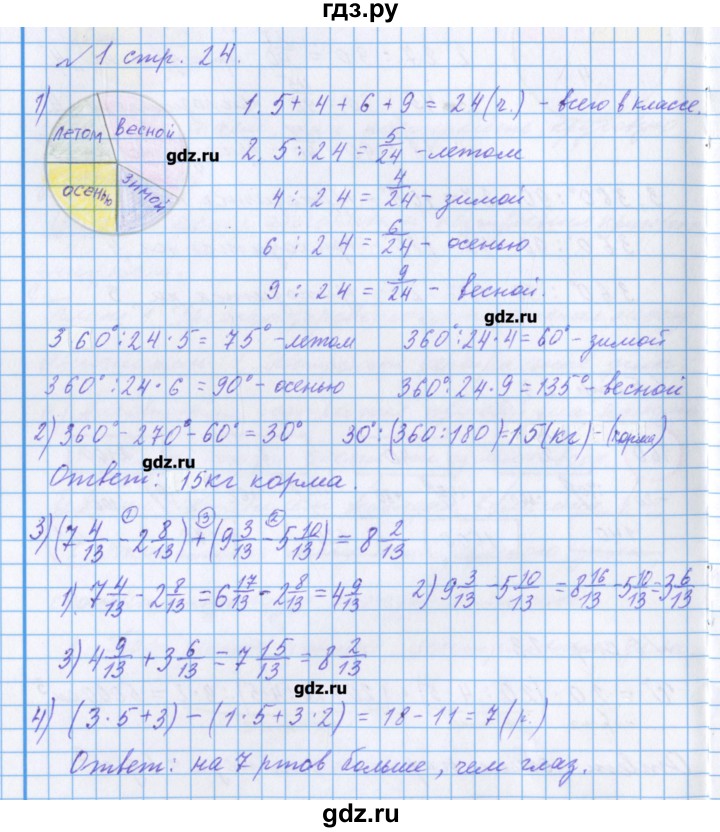 гдз.ру
№1 стр. 24.
1) 1. 5 + 4 + 6 + 9 = 24 (ч.) - всего в классе.
летом весной
осенью зимой
gdz.ru
2. 5 : 24 = 5/24 - летом
4 : 24 = 4/24 - зимой
6 : 24 = 6/24 - осенью
9 : 24 = 9/24 - весной.
gdz.ru
360° : 24 · 5 = 75° - летом 360° : 24 · 4 = 60° - зимой
360° : 24 · 6 = 90° - осенью 360° : 24 · 9 = 135° - весной
2) 360° - 270° - 60° = 30° 30° : (360 : 180) = 15 (кг) - (корма)
gdz.ru
Ответ: 15 кг корма.
3) (7 4/13 - 2 8/13) + (9 3/13 - 5 10/13) = 8 2/13
1 3 2
1) 7 4/13 - 2 8/13 = 6 17/13 - 2 8/13 = 4 9/13 2) 9 3/13 - 5 10/13 = 8 16/13 - 5 10/13 = 3 6/13
3) 4 9/13 + 3 6/13 = 7 15/13 = 8 2/13
gdz.ru
4) (3 · 5 + 3) - (1 · 5 + 3 · 2) = 18 - 11 = 7 (р.)
Ответ: на 7 ртов больше, чем глаз.
gdz.ru